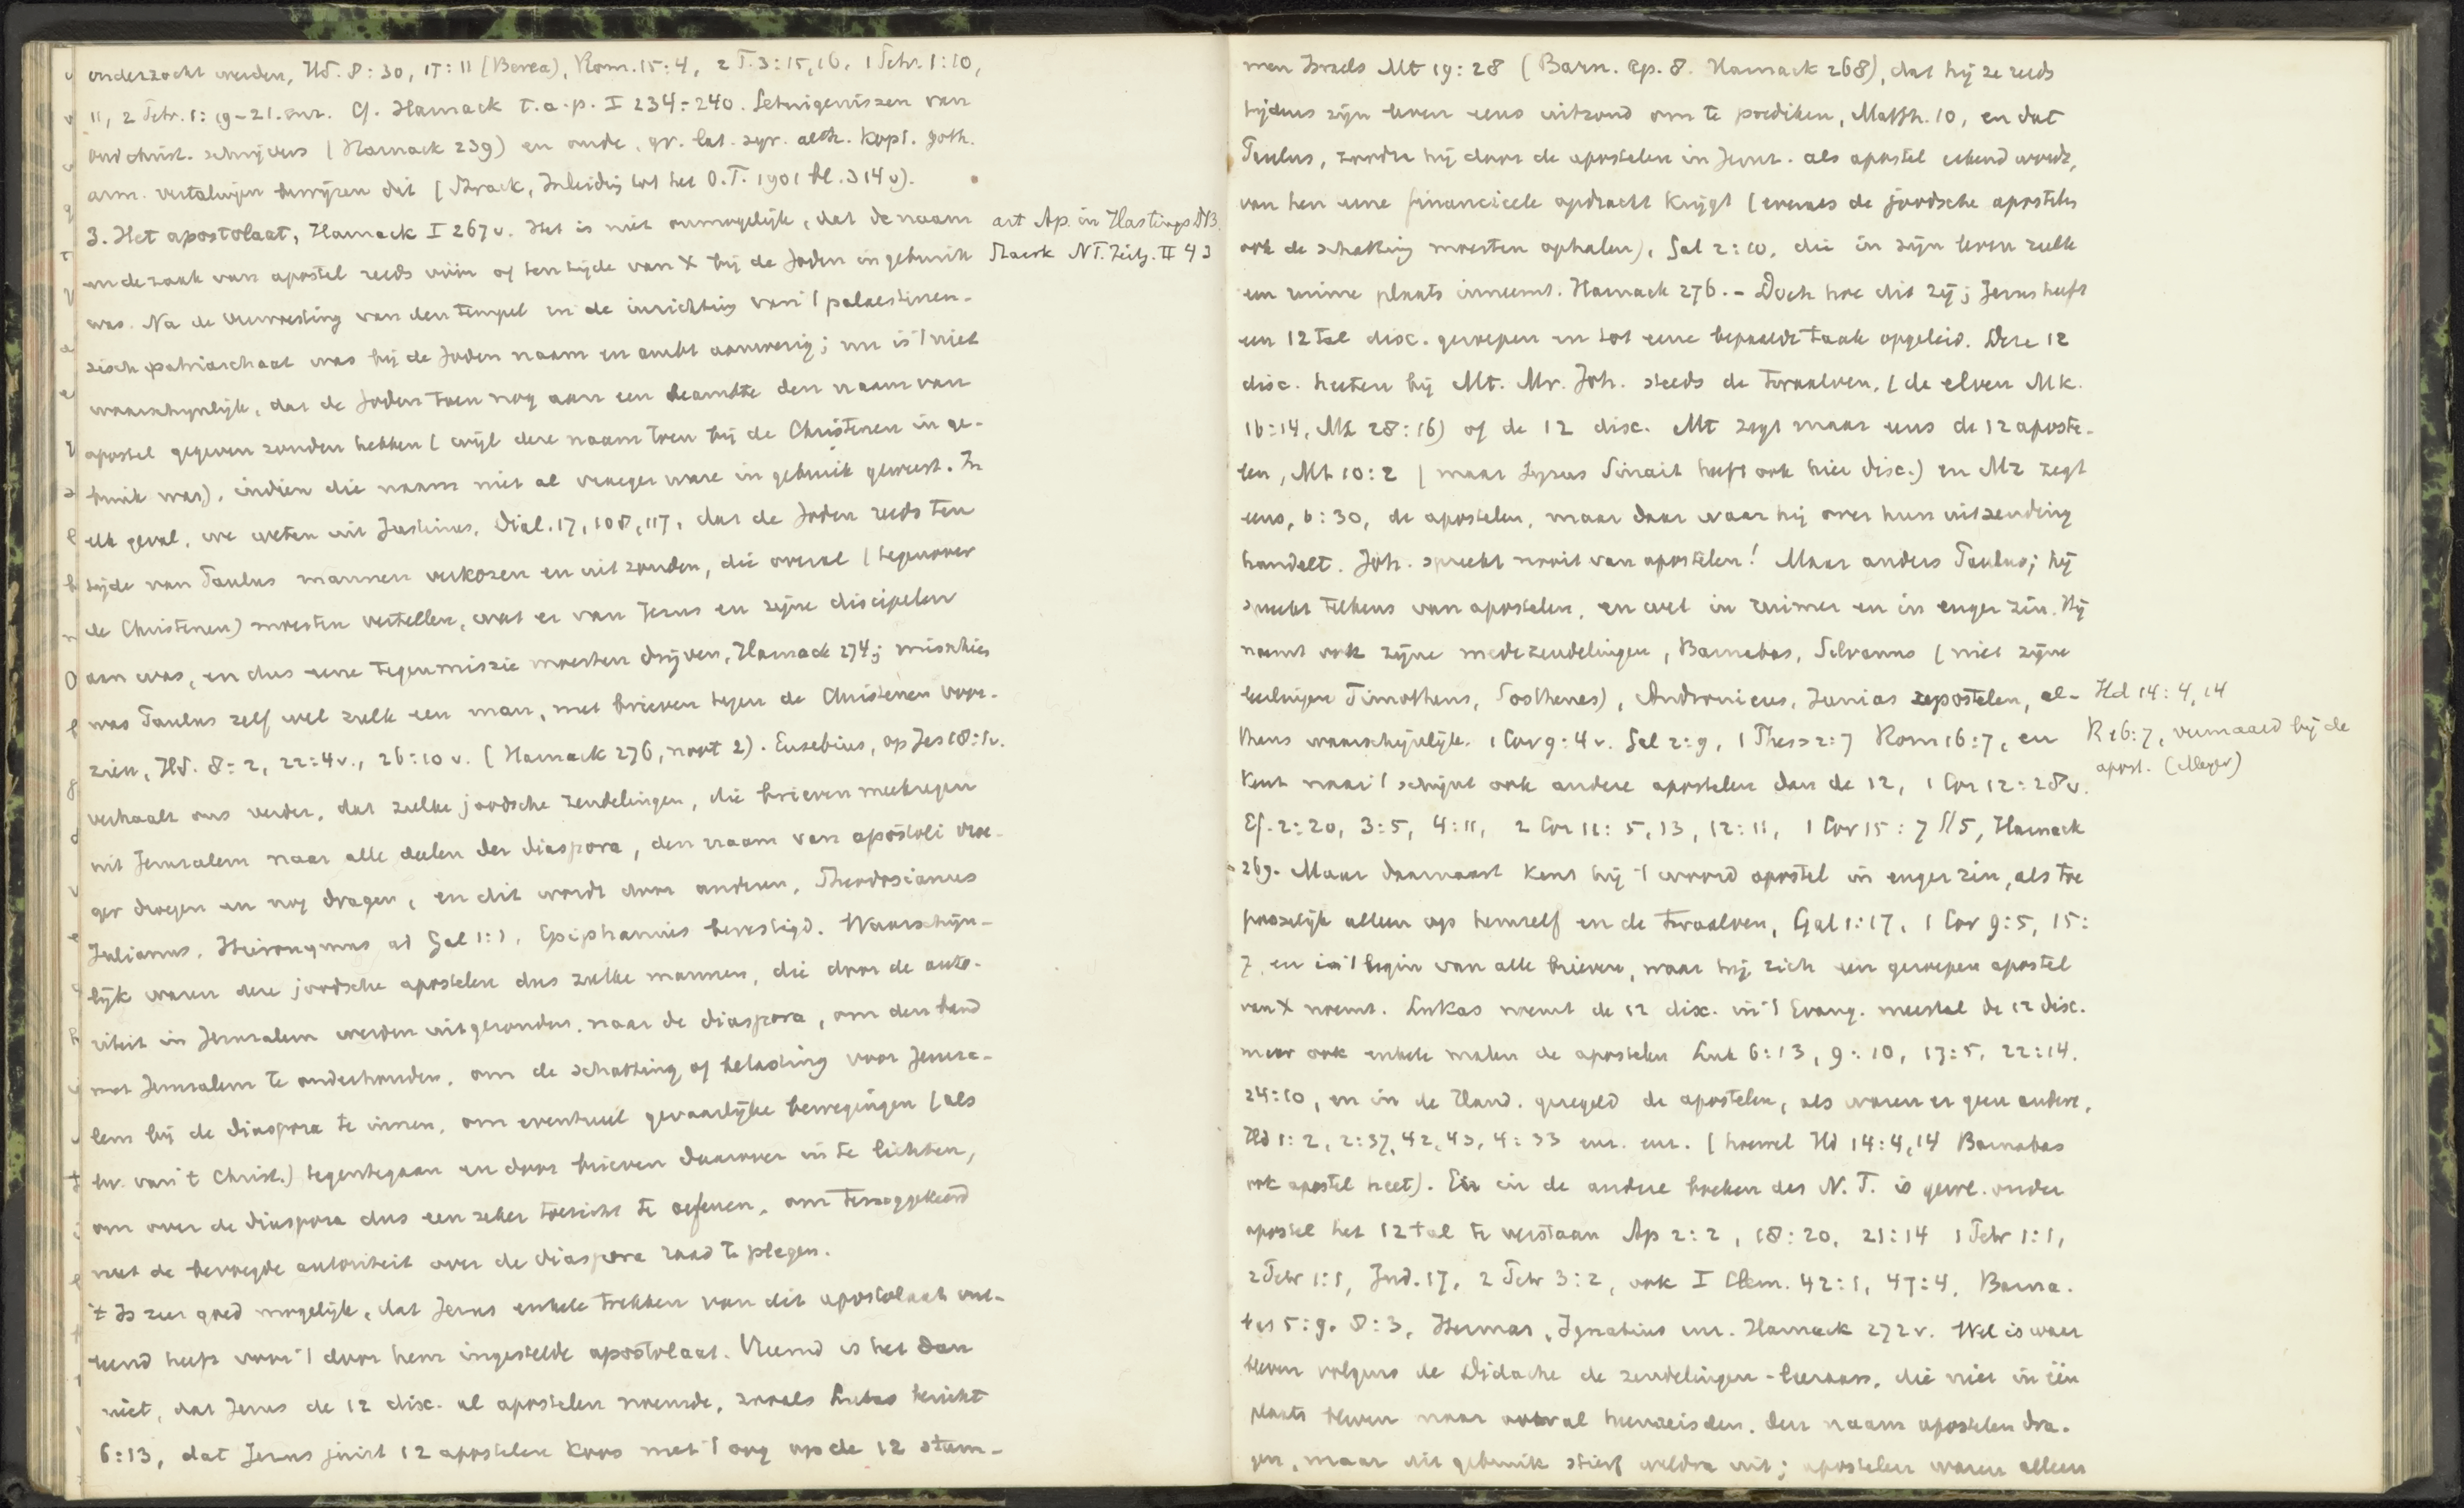 onderzocht werden, Hd. 8:30, 17:11 (Berea), Rom. 15:4, 2 T. 3:15,16, 1 Petr. 1:10,
11, 2 Petr. 1:19-21. enz. Cf. Harnack t.a.p. I 234-240. Getuigenissen van
oudchrist. schrijvers (Harnack 239) en oude, gr. lat. syr. aeth. kopt. goth.
arm. vertalingen bewijzen dit (Strack, Inleiding tot het O.T. 1901 bl. 314 v).
3. Het apostolaat, Harnack I 267 v. Het is niet onmogelijk, dat de naam
en de zaak van apostel reeds vóór of ten tijde van X bij de Joden in gebruik
was. Na de verwoesting van den tempel en de inrichting van 't palaestinen-
zisch patriarchaat was bij de Joden naam en ambt aanwezig; nu is 't niet
waarschijnlijk, dat de Joden toen nog aan een beambte den naam van
apostel gegeven zouden hebben (wijl deze naam toen bij de Christenen in ge-
bruik was), indien die naam niet al vroeger ware in gebruik geweest. In
elk geval, we weten uit Justinus, Dial. 17, 108, 117, dat de Joden reeds ten
tijde van Paulus mannen verkozen en uitzonden, die overal (tegenover
de Christenen) moesten vertellen, wat er van Jezus en zijne discipelen
aan was, en dus eene tegenmissie moesten drijven, Harnack 274; misschien
was Paulus zelf wel zulk een man, met brieven tegen de Christenen voor-
zien, Hd. 8:2, 22:4 v., 26:10 v. (Harnack 276, noot 2). Eusebius, op Jes 18:1v.
verhaalt ons verder, dat zulke joodsche zendelingen, die brieven meekregen
uit Jeruzalem naar alle deelen der diaspora, den naam van apostoli vroe-
ger droegen en nog dragen, en dit wordt door anderen, Theodosianus
Julianus, Hieronymus ad Gal 1:1, Epiphanius bevestigd. Waarschijn-
lijk waren deze joodsche apostelen dus zulke mannen, die door de auto-
riteit in Jeruzalem werden uitgezonden, naar de diaspora, om den band
met Jeruzalem te onderhouden, om de schatting of belasting voor Jeruza-
lem bij de diaspora te innen, om eventueel gevaarlijke bewegingen (als
bv. van 't Christ.) tegentegaan en door brieven daarover in te lichten,
om over de diaspora dus een zeker toezicht te oefenen, om teruggekeerd
met de bevoegde autoriteit over de diaspora raad te plegen.
't Is zeer goed mogelijk, dat Jezus enkele trekken van dit apostolaat ont-
leend heeft voor 't door hem ingestelde apostolaat. Vreemd is het dan
niet, dat Jezus de 12 disc. al apostelen noemde, zooals Lukas bericht
6:13, dat Jezus juist 12 apostelen koos met 't oog op de 12 stam-
art Ap. in Hastings DB.
NT. Zeitg. II 43
men Israels Mt 19:28 (Barn. Ep. 8. Harnack 268), dat hij ze reeds
tijdens zijn leven eens uitzond om te prediken, Matth. 10, en dat
Paulus, zoodra hij door de apostelen in Jeruz. als apostel erkend wordt,
van hen eene financieele opdracht krijgt (evenals de joodsche apostelen
ook de schatting moesten ophalen), Gal 2:10, die in zijn leven zulk
een ruime plaats inneemt. Harnack 276. - Doch hoe dit zij; Jezus heeft
een 12tal disc. geroepen en tot eene bepaalde taak opgeleid. Deze 12
disc. heeten bij Mt. Mr. Joh. steeds de twaalven, (de elven Mk.
16:14, Mt 28:16) of de 12 disc. Mt zegt maar eens de 12 aposte-
len, Mt 10:2 (maar Syrus Sinait heeft ook hier disc.) en Mr zegt
eens, 6:30, de apostelen, maar daar waar hij over hun uitzending
handelt. Joh. spreekt nooit van apostelen! Maar anders Paulus; hij
spreekt telkens van apostelen, en wel in ruimer en in enger zin. Hij
noemt ook zijne medezendelingen, Barnabas, Silvanus (niet zijne
leerlingen Timotheus, Sosthenes), Andronicus, Junias apostelen, al-
thans waarschijnlijk. 1 Cor 9:4 v. Gal 2:9, 1 Thess 2:7 Rom 16:7, en
kent naar 't schijnt ook andere apostelen dan de 12, 1 Cor 12:28v.
Ef. 2:20, 3:5, 4:11, 2 Cor 11:5,13, 12:11, 1 Cor 15:7 // 5, Harnack
269. Maar daarnaast kent hij 't woord apostel in enger zin, als toe
passelijk alleen op hemzelf en de twaalven, Gal 1:17, 1 Cor 9:5, 15:
7, en in 't begin van alle brieven, waar hij zich een geroepen apostel
van X noemt. Lukas noemt de 12 disc. in 't Evang. meestal de 12 disc.
maar ook enkele malen de apostelen Luk 6:13, 9:10, 17:5, 22:14.
24:10, en in de Hand. geregeld de apostelen, als waren er geen andere,
Hd 1:2, 2:37, 42, 43, 4:33 enz. enz. (hoewel Hd 14:4,14 Barnabas
ook apostel heet). En in de andere boeken des N.T. is gew. onder
apostel het 12tal te verstaan Ap 2:2, 18:20, 21:14 1 Petr 1:1,
2 Petr 1:1, Jud. 17, 2 Petr 3:2, ook I Clem. 42:1, 47:4, Barna-
bas 5:9, 8:3, Hermas, Ignatius enz. Harnack 272 v. Wel is waar
bleven volgens de Didache de zendelingen-leeraars, die niet in één
plaats bleven maar overal heenreisden, den naam apostelen dra-
gen, maar dit gebruik stierf weldra uit; apostelen waren alleen
Hd 14:4,14
R 16:7, vermaard bij de
apost. (Meyer)